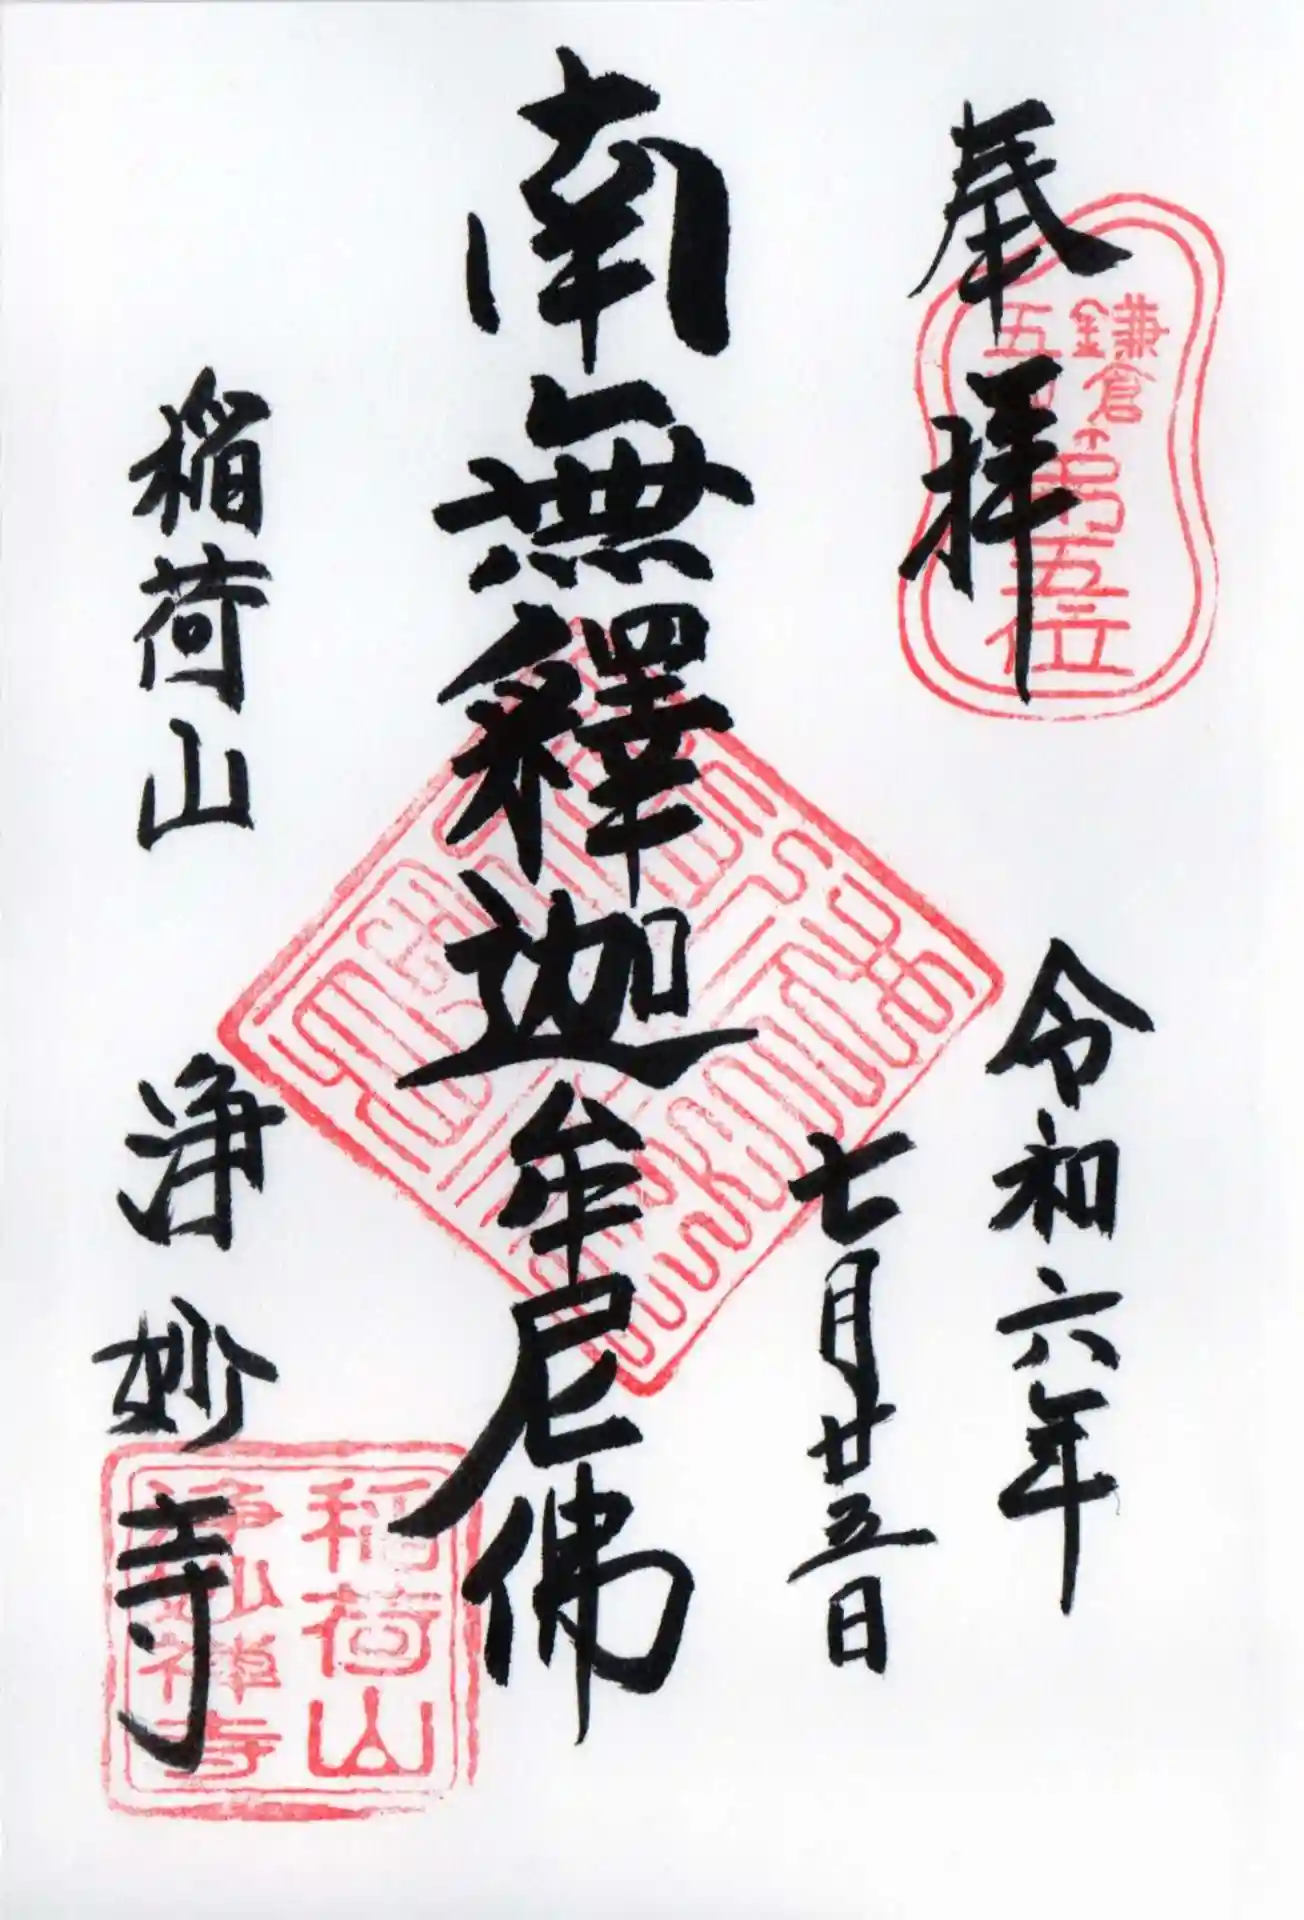 奉拝
鎌倉
五山第五位
令和六年
七月廿五日
南無釋迦牟尼佛
稲荷山
浄妙寺
稲荷山
浄妙禅寺